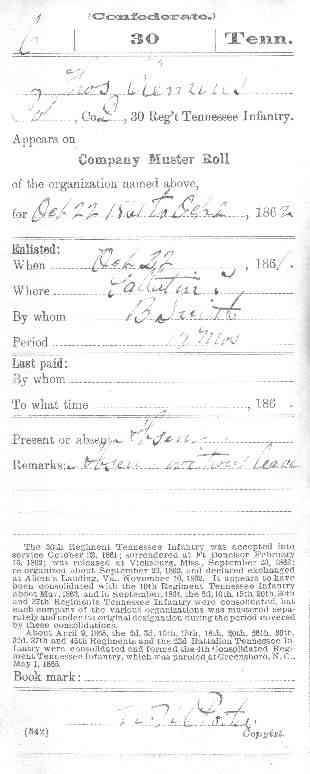 (Confederate.)
C 30 Tenn.
Thos Clemens
, Co. , 30 Reg't Tennessee Infantry.
Appears on
Company Muster Roll
of the organization named above,
for Oct 22 1861 to Oct 2 , 1862
Enlisted:
When Oct 22 , 1861.
Where Gallatin
By whom B Smith
Period 12 Mos
Last paid:
By whom
To what time , 186 .
Present or absent Absent
Remarks: Absent without leave
The 30th Regiment Tennessee Infantry was accepted into
service October 22, 1861; surrendered at Ft Donelson February
16, 1862; was released at Vicksburg, Miss., September 23, 1862;
re-organized about September 29, 1862, and declared exchanged
at Aiken's Landing, Va., November 10, 1862. It appears to have
been consolidated with the 10th Regiment Tennessee Infantry
about Mar., 1863, and in September, 1864, the 3d, 10th, 15th, 20th, 30th
and 37th Regiments Tennessee Infantry were consolidated, but
each company of the various organizations was mustered sepa-
rately and under its original designation during the period covered
by these consolidations.
About April 9, 1865, the 2d, 3d, 10th, 15th, 18th, 20th, 26th, 30th,
32d, 37th and 45th Regiments and the 23d Battalion Tennessee In-
fantry were consolidated and formed the 4th Consolidated Regi-
ment Tennessee Infantry, which was paroled at Greensboro, N. C.,
May 1, 1865.
Book mark:
(642) Copyist.